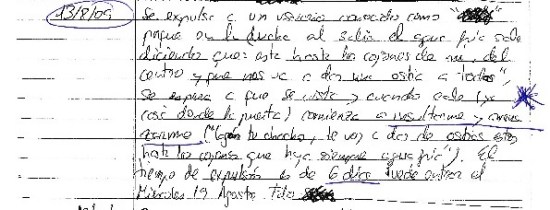 13/8/09 Se expulsa a un usuario conocido como "
porque en la ducha al salir el agua fría sale
diciendo que: esta hasta los cojones de mi, del
centro y que nos va a dar una ostia a todos",
Se espera a que se vista y cuando sale (yo
casi donde la puerta) comienza a insultarme y
("Cojón tu chacho, te voy a dar de ostias estoy
hasta los cojones que haya siempre agua fría"). El
tiempo de expulsión es de 6 días puede entrar el
Miércoles 19 Agosto.